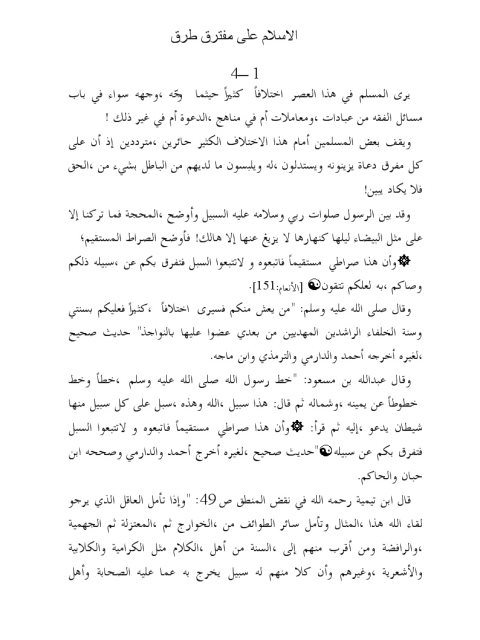 الاسلام على مفترق طرق
1 –4
يرى المسلم في هذا العصر اختلافاً كثيراً حيثما وجّه ،وجهه سواء في باب
مسائل الفقه من عبادات ،ومعاملات أم في مناهج ،الدعوة أم في غير ذلك !
ويقف بعض المسلمين أمام هذا الاختلاف الكثير حائرين ،مترددين إذ أن على
كل مفرق دعاة يزينونه ويستدلون ،له ويلبسون ما لديهم من الباطل بشيء من ،الحق
فلا يكاد يبين!
وقد بين الرسول صلوات ربي وسلامه عليه السبيل وأوضح ،المحجة فما تركنا إلا
على مثل البيضاء ليلها كنهارها لا يزيغ عنها إلا هالك! فأوضح الصراط المستقيم؛
وأن هذا صراطي مستقيماً فاتبعوه و لاتتبعوا السبل فتفرق بكم عن ،سبيله ذلكم
وصاكم ،به لعلكم تتقون [الأنعام:151].
وقال صلى الله عليه وسلم: "من يعش منكم فسيرى اختلافاً ،كثيراً فعليكم بسنتي
وسنة الخلفاء الراشدين المهديين من بعدي عضوا عليها بالنواجذ" حديث صحيح
،لغيره أخرجه أحمد والدارمي والترمذي وابن ماجه.
وقال عبدالله بن مسعود: "خط رسول الله صلى الله عليه وسلم ،خطاً وخط
خطوطاً عن يمينه ،وشماله ثم قال: هذا سبيل ،الله وهذه ،سبل على كل سبيل منها
شيطان يدعو ،إليه ثم قرأ: وأن هذا صراطي مستقيماً فاتبعوه و لاتتبعوا السبل
فتفرق بكم عن سبيله"حديث صحيح ،لغيره أخرج أحمد والدارمي وصححه ابن
حبان والحاكم.
قال ابن تيمية رحمه الله في نقض المنطق ص49: "وإذا تأمل العاقل الذي يرجو
لقاء الله هذا ،المثال وتأمل سائر الطوائف من ،الخوارج ثم ،المعتزلة ثم الجهمية
،والرافضة ومن أقرب منهم إلى ،السنة من أهل ،الكلام مثل الكرامية والكلابية
والأشعرية ،وغيرهم وأن كلا منهم له سبيل يخرج به عما عليه الصحابة وأهل